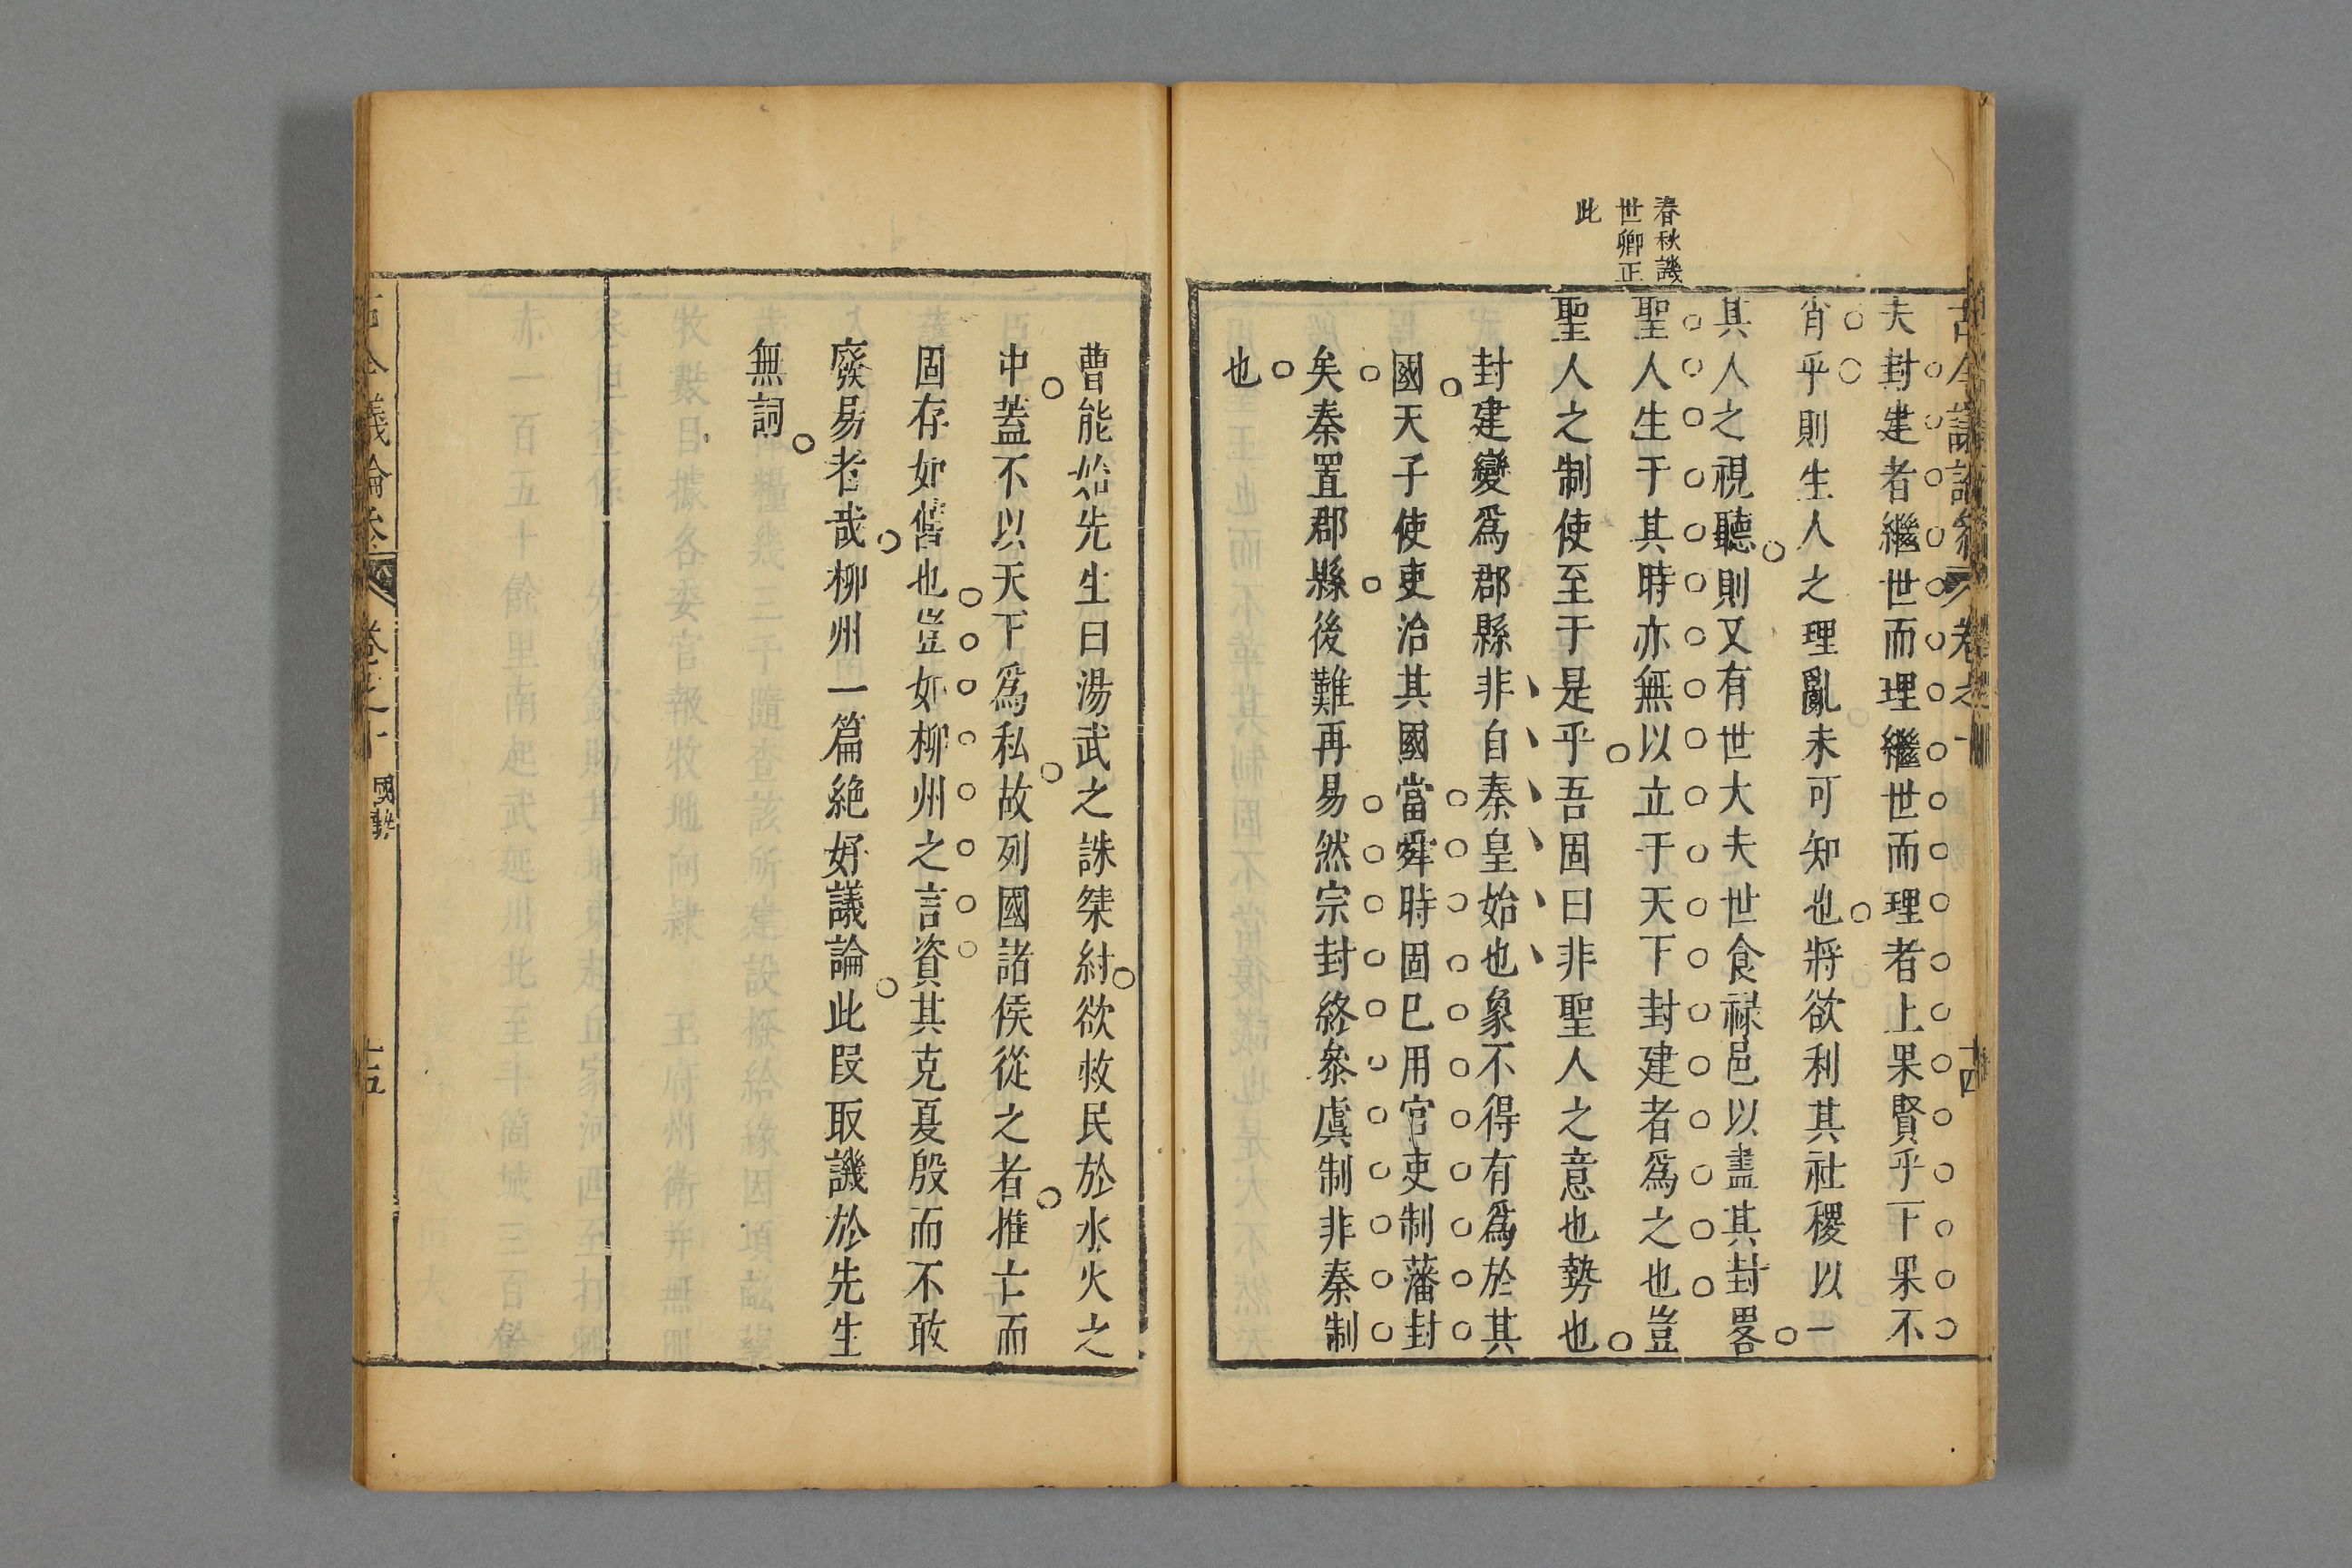 古今議論參 卷之十 十四
春秋譏
世卿正
此
夫封建者繼世而理繼世而理者上果賢乎下果不
肖乎則生人之理亂未可知也將欲利其社稷以一
其人之視聽則又有世大夫世食祿邑以盡其封畧
聖人生于其時亦無以立于天下封建者爲之也豈
聖人之制使至于是乎吾固曰非聖人之意也勢也
封建變爲郡縣非自秦皇始也象不得有爲於其
國天子使吏治其國當舜時固已用官吏制藩封
矣秦置郡縣後難再易然宗封終參虞制非秦制
也
曹能始先生曰湯武之誅桀紂欲救民於水火之
中蓋不以天下爲私故列國諸侯從之者推亡而
固存如舊也豈如柳州之言資其克夏殷而不敢
廢易者哉柳州一篇絶好議論此段取譏於先生
無詞
古今議論參 卷之十 十五